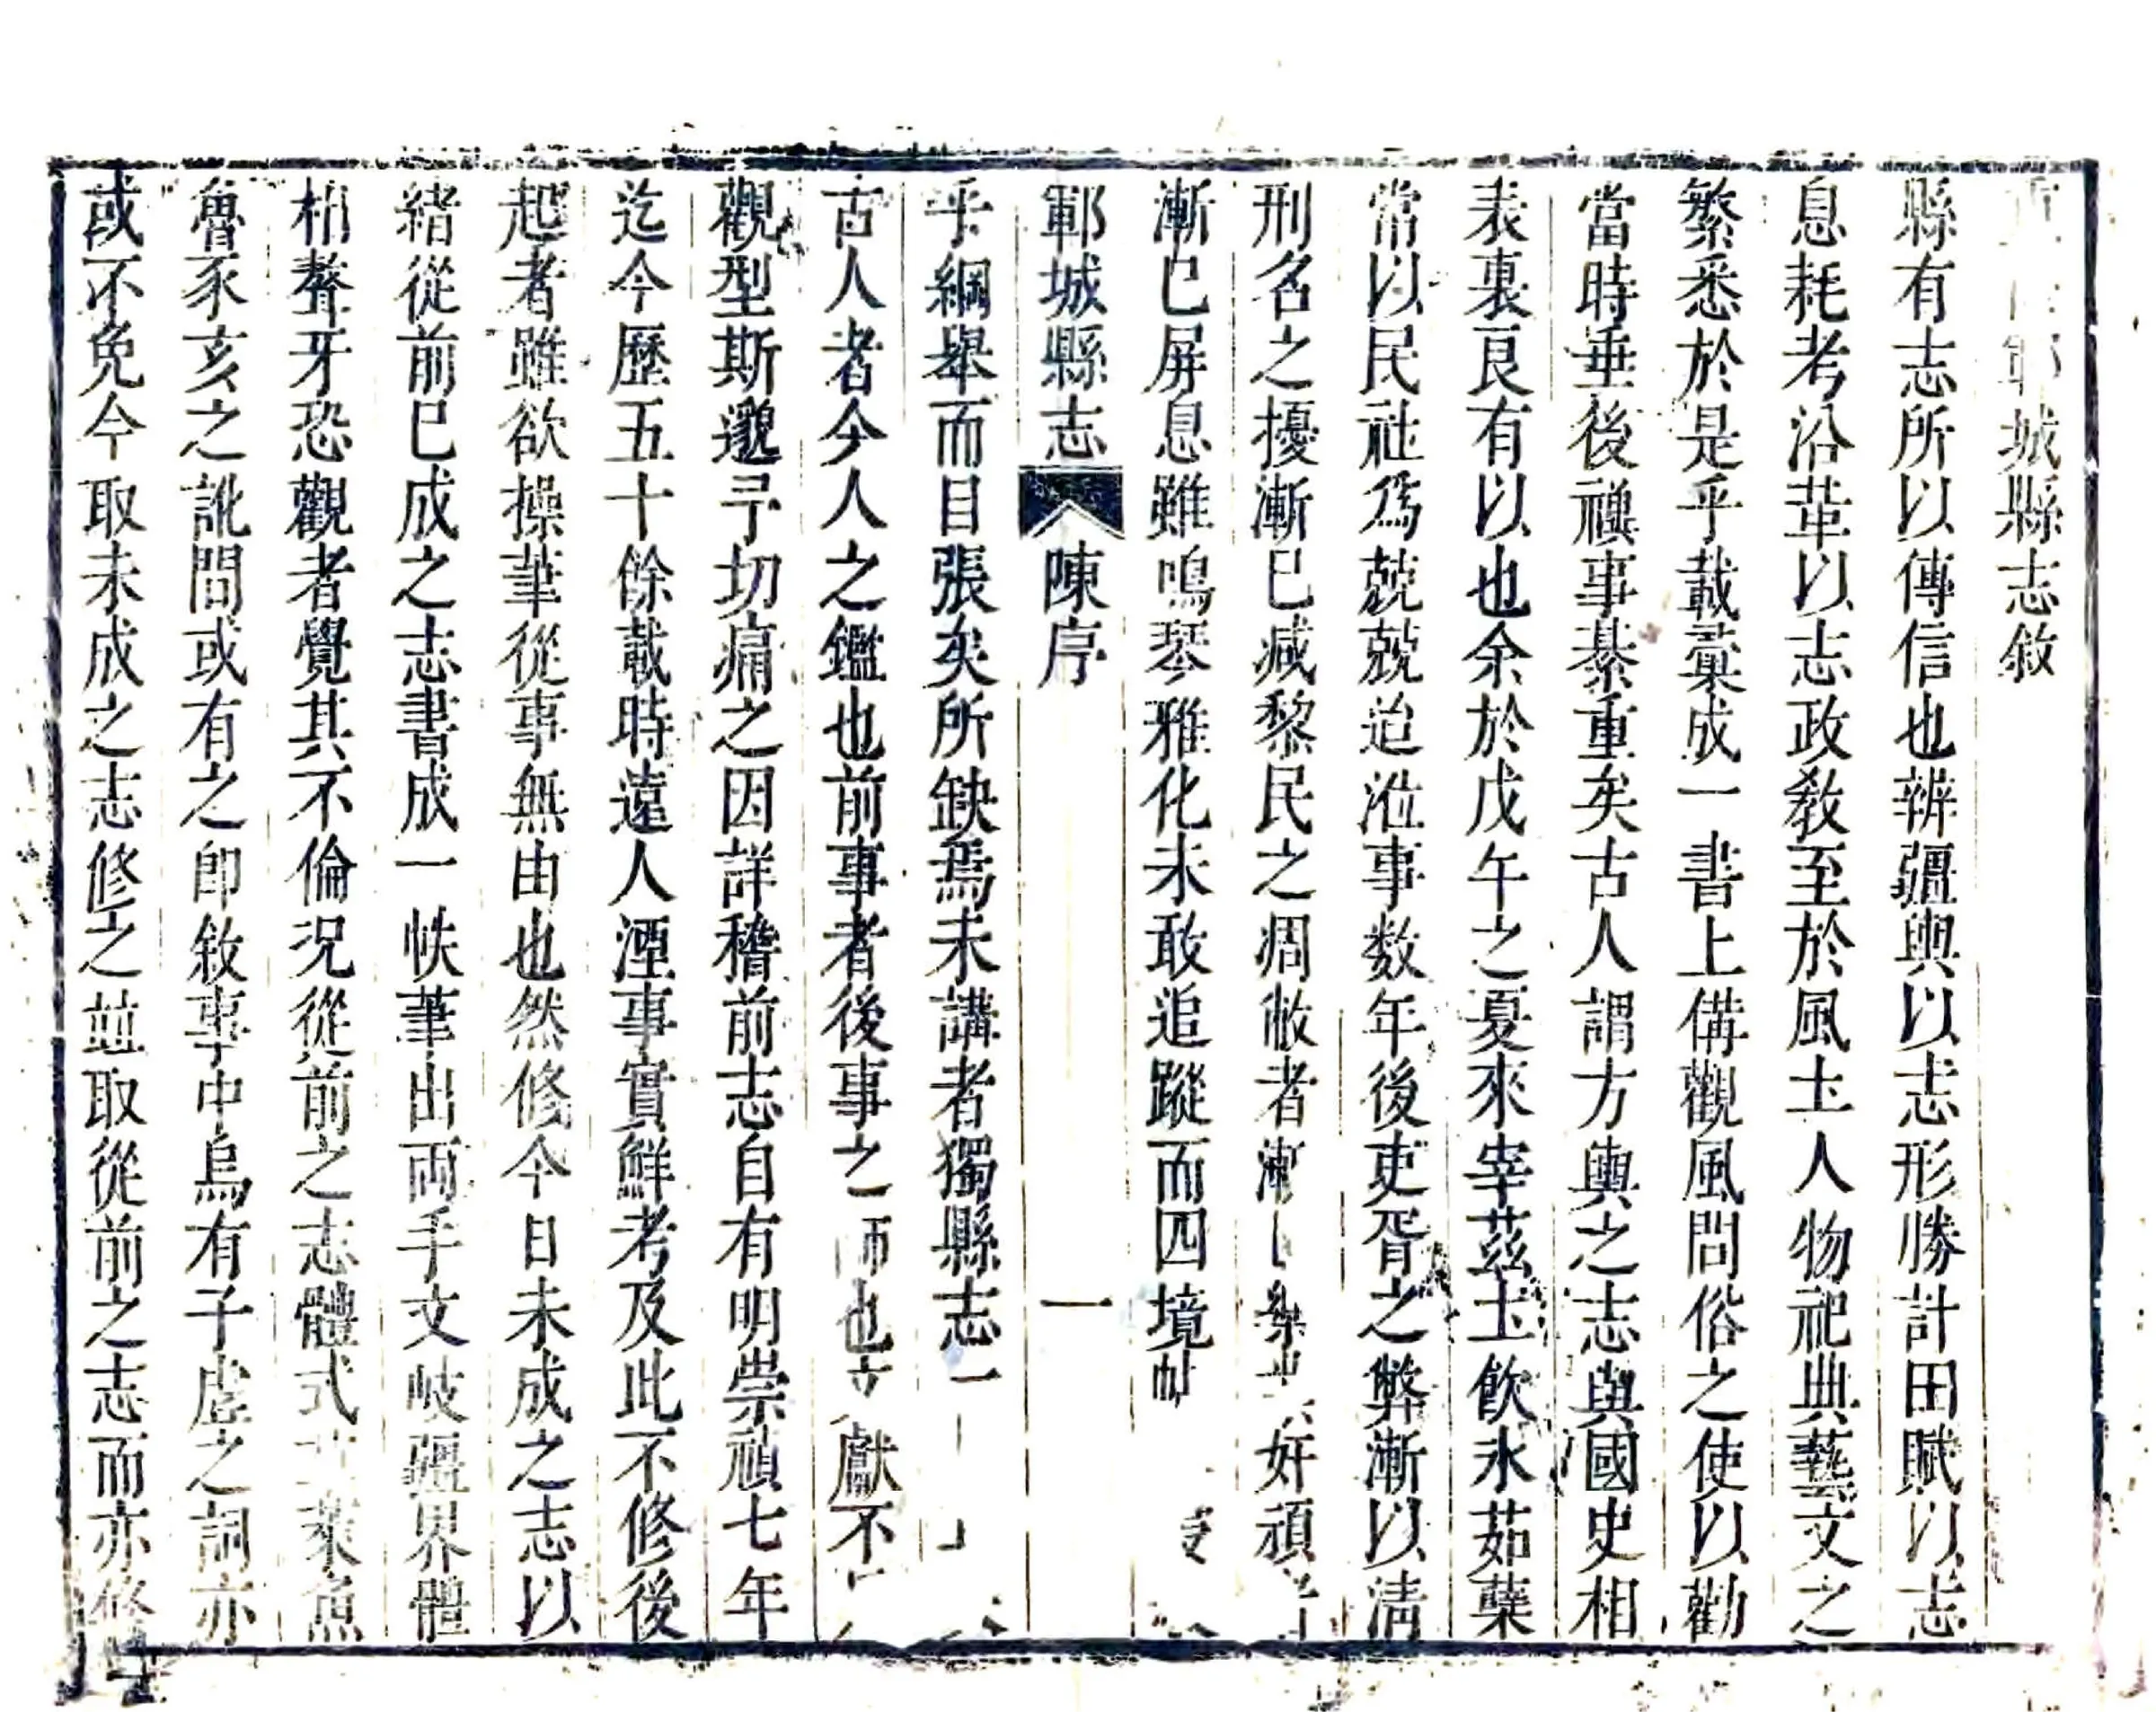 鄆城縣志敘
縣有志所以傳信也辨疆輿以志形勝計田賦以志
息耗考沿革以志政敎至於風土人物祀典藝文之
繁悉於是乎載彚成一書上備觀風問俗之使以勸
當時垂後禩事綦重矣古人謂方輿之志與國史相
表裏良有以也余於戊午之夏來宰茲土飲氷茹蘗
常以民社爲兢兢迨涖事数年後吏胥之弊漸以淸
刑名之擾漸巳減黎民之凋敝者漸奸頑
漸巳屏息雖鳴琴雅化未敢追蹤而四境
鄆城縣志 陳序 一
乎綱舉而目張矣所缺焉未講者獨縣志一
古人者今人之鑑也前事者後事之師也文獻不
觀型斯邈予切痛之因詳稽前志自有明崇禎七年
迄今歷五十餘載時遠人湮事實鮮考及此不修後
起者雖欲操筆從事無由也然修今日未成之志以
緒從前巳成之志書成一帙筆出両手文岐疆界體
相聱牙恐觀者覺其不倫况從前之志體式魚
魯豕亥之訛間或有之卽敘事中烏有子虛之詞亦
或不免今取未成之志修之並取從前之志而亦修